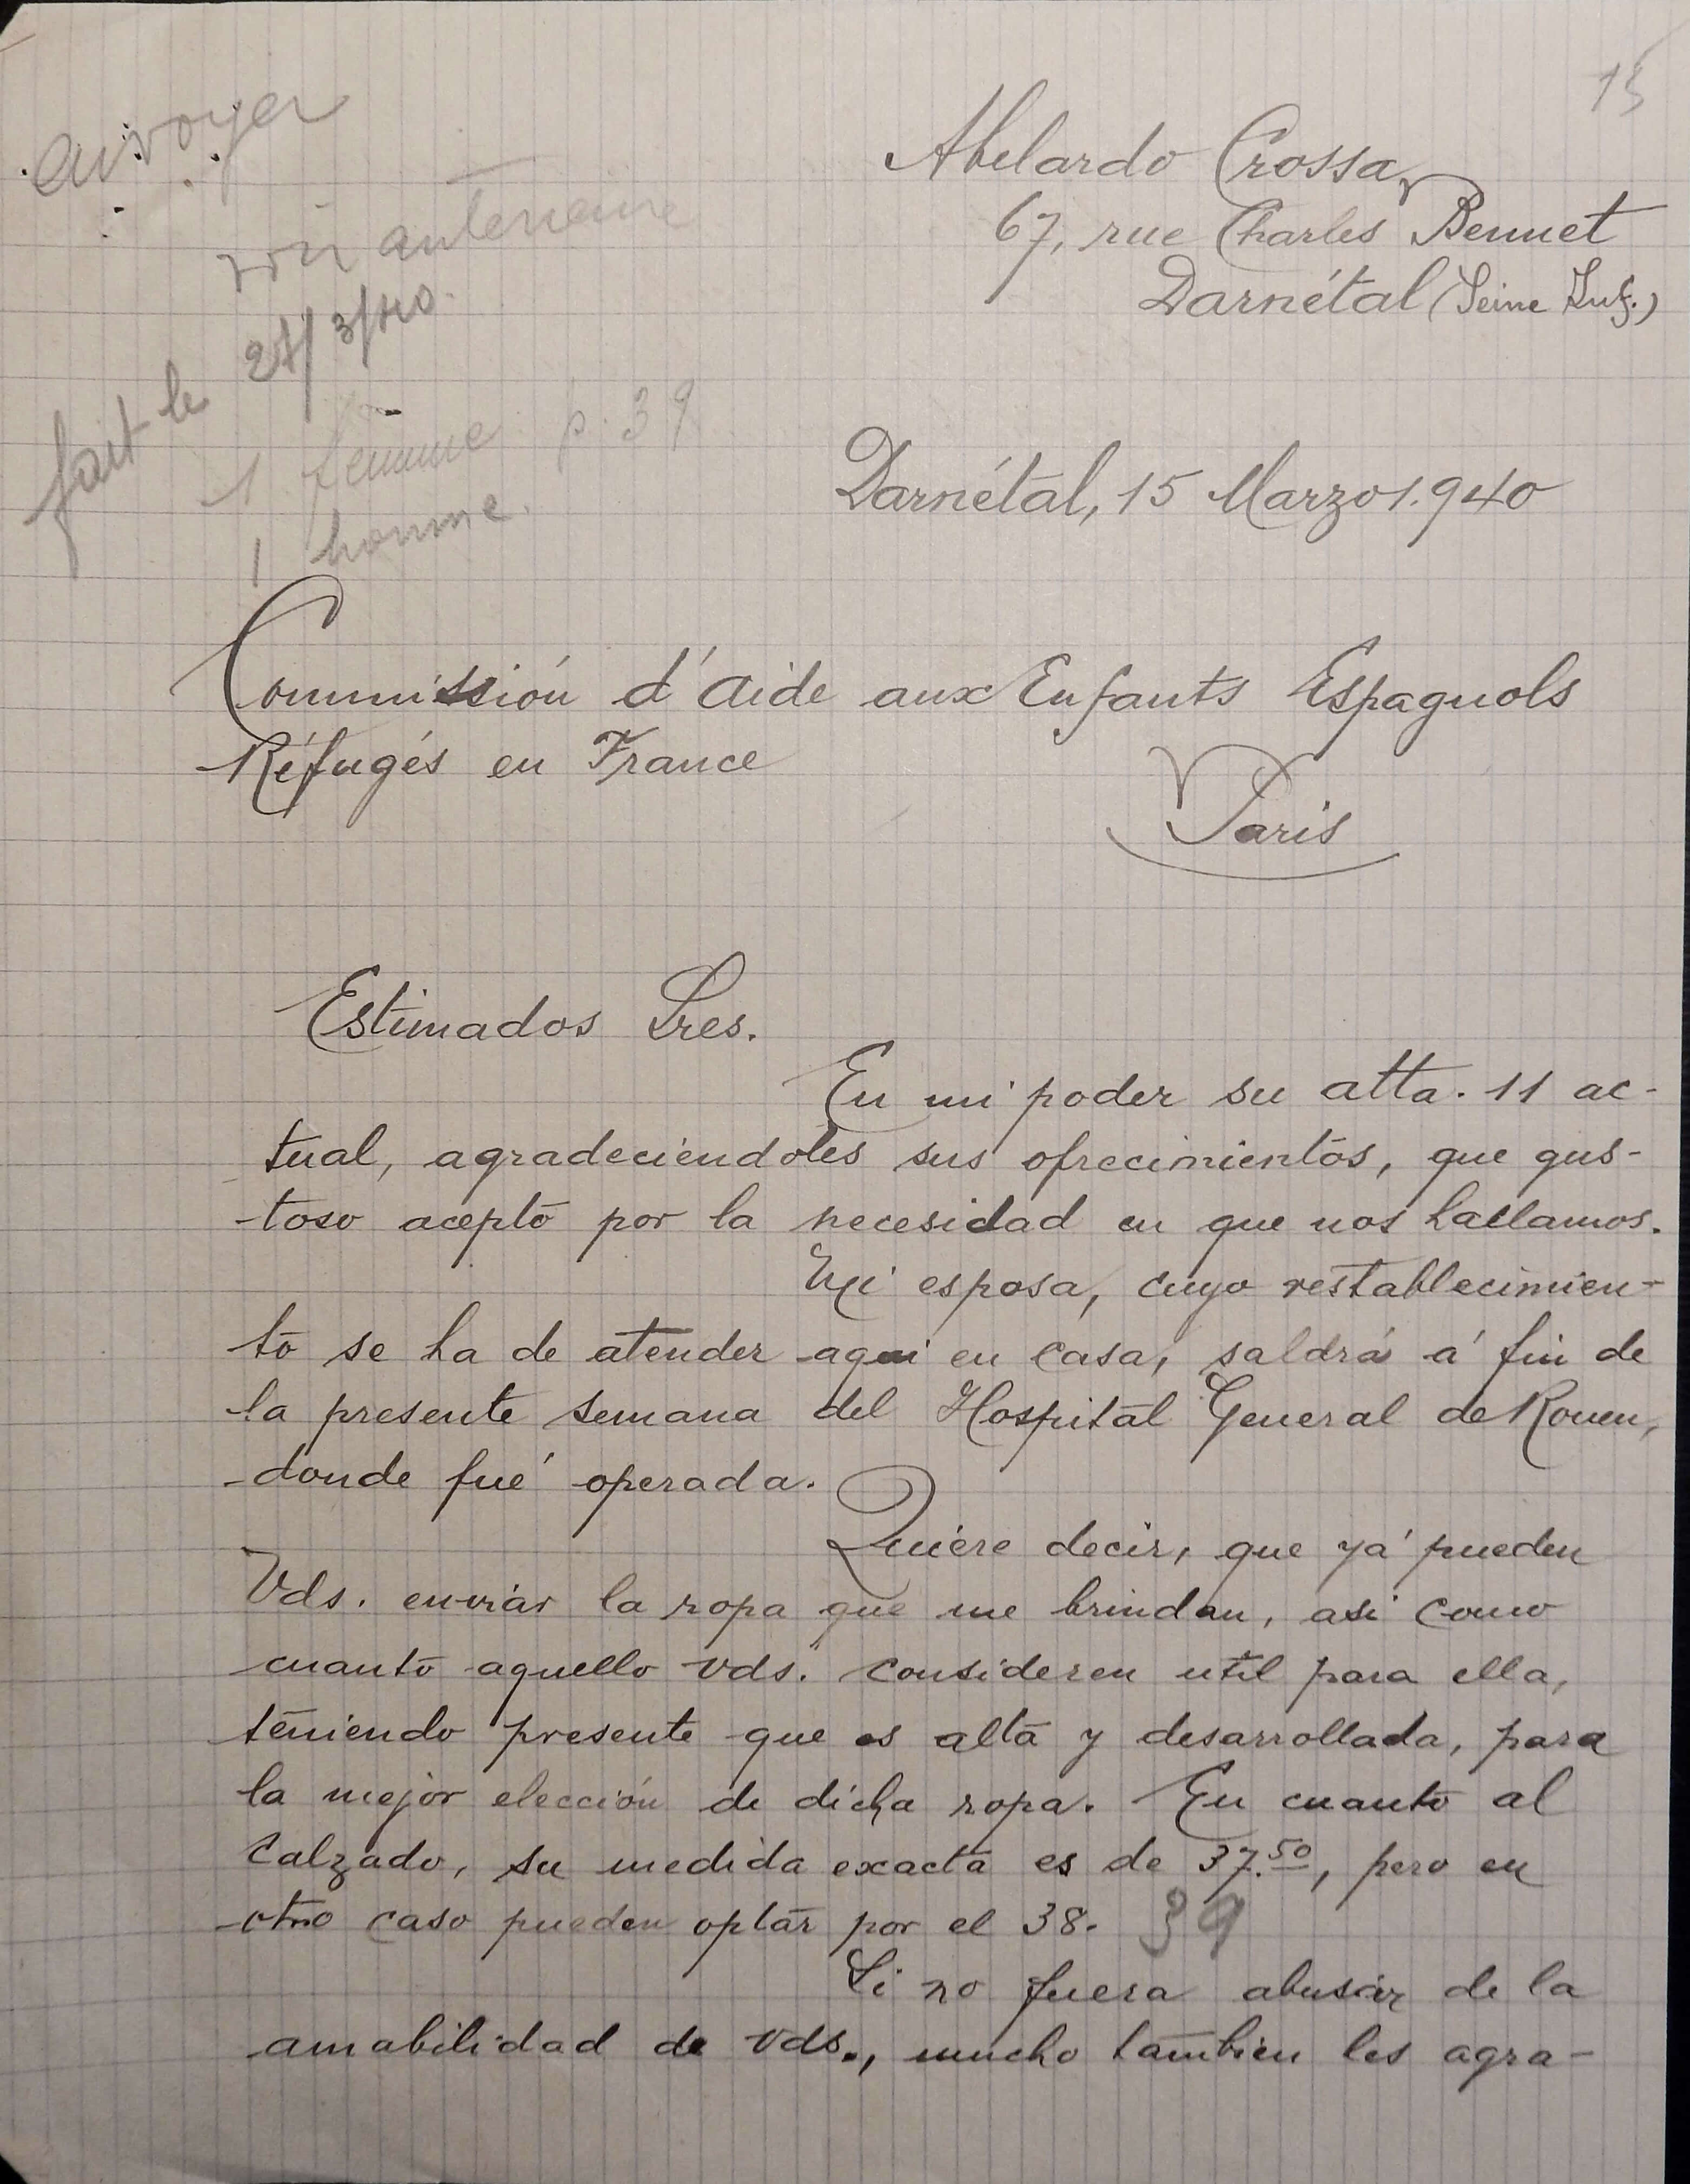 15
envoyer
voir anterieure
fait le 27/3/40.
1 femme p. 39
1 homme.
Abelardo Crossa
67, rue Charles Bennet
Darnétal (Seine Inf.)
Darnétal, 15 Marzo 1.940
Commissión d'Aide aux Enfants Espagnols
Réfugés en France
Paris
Estimados Sres.
En mi poder su atta. 11 ac-
tual, agradeciendoles sus ofrecimientos, que gus-
toso acepto por la necesidad en que nos hallamos.
Mi esposa, cuyo restablecimien-
to se ha de atender aqui en casa, saldrá á fin de
la presente semana del Hospital General de Rouen,
donde fué operada.
Quiere decir, que yá pueden
Vds. enviar la ropa que me brindan, asi como
cuanto aquello vds. consideren util para ella,
teniendo presente que es alta y desarrollada, para
la mejor elección de dicha ropa. En cuanto al
calzado, su medida exacta es de 37.50, pero en
otro caso pueden optar por el 38. 39
Si no fuera abusar de la
amabilidad de vds., mucho tambien les agra-